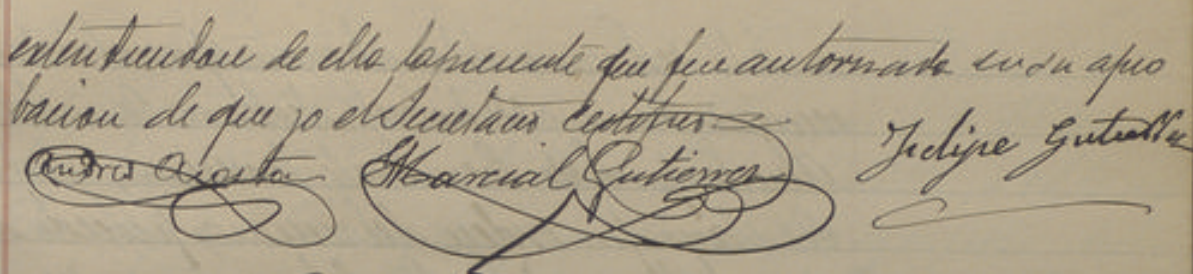 extendiendose de ella la presente que fue autorizada en su apro
bacion de que yo el Secretario certifico
Andres Acosta Marcial Gutierrez Felipe Gutierrez